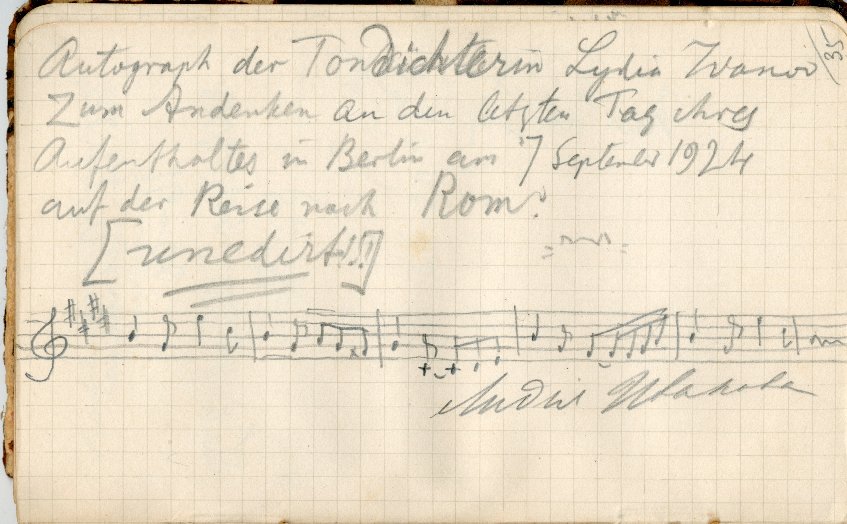 35
Autograph der Tondichterin Lydia Ivanov
Zum Andenken an den letzten Tag ihres
Aufenthaltes in Berlin am 7 September 1924
auf der Reise nach Rom.
[unedirt!!!]
Лидия Иванова